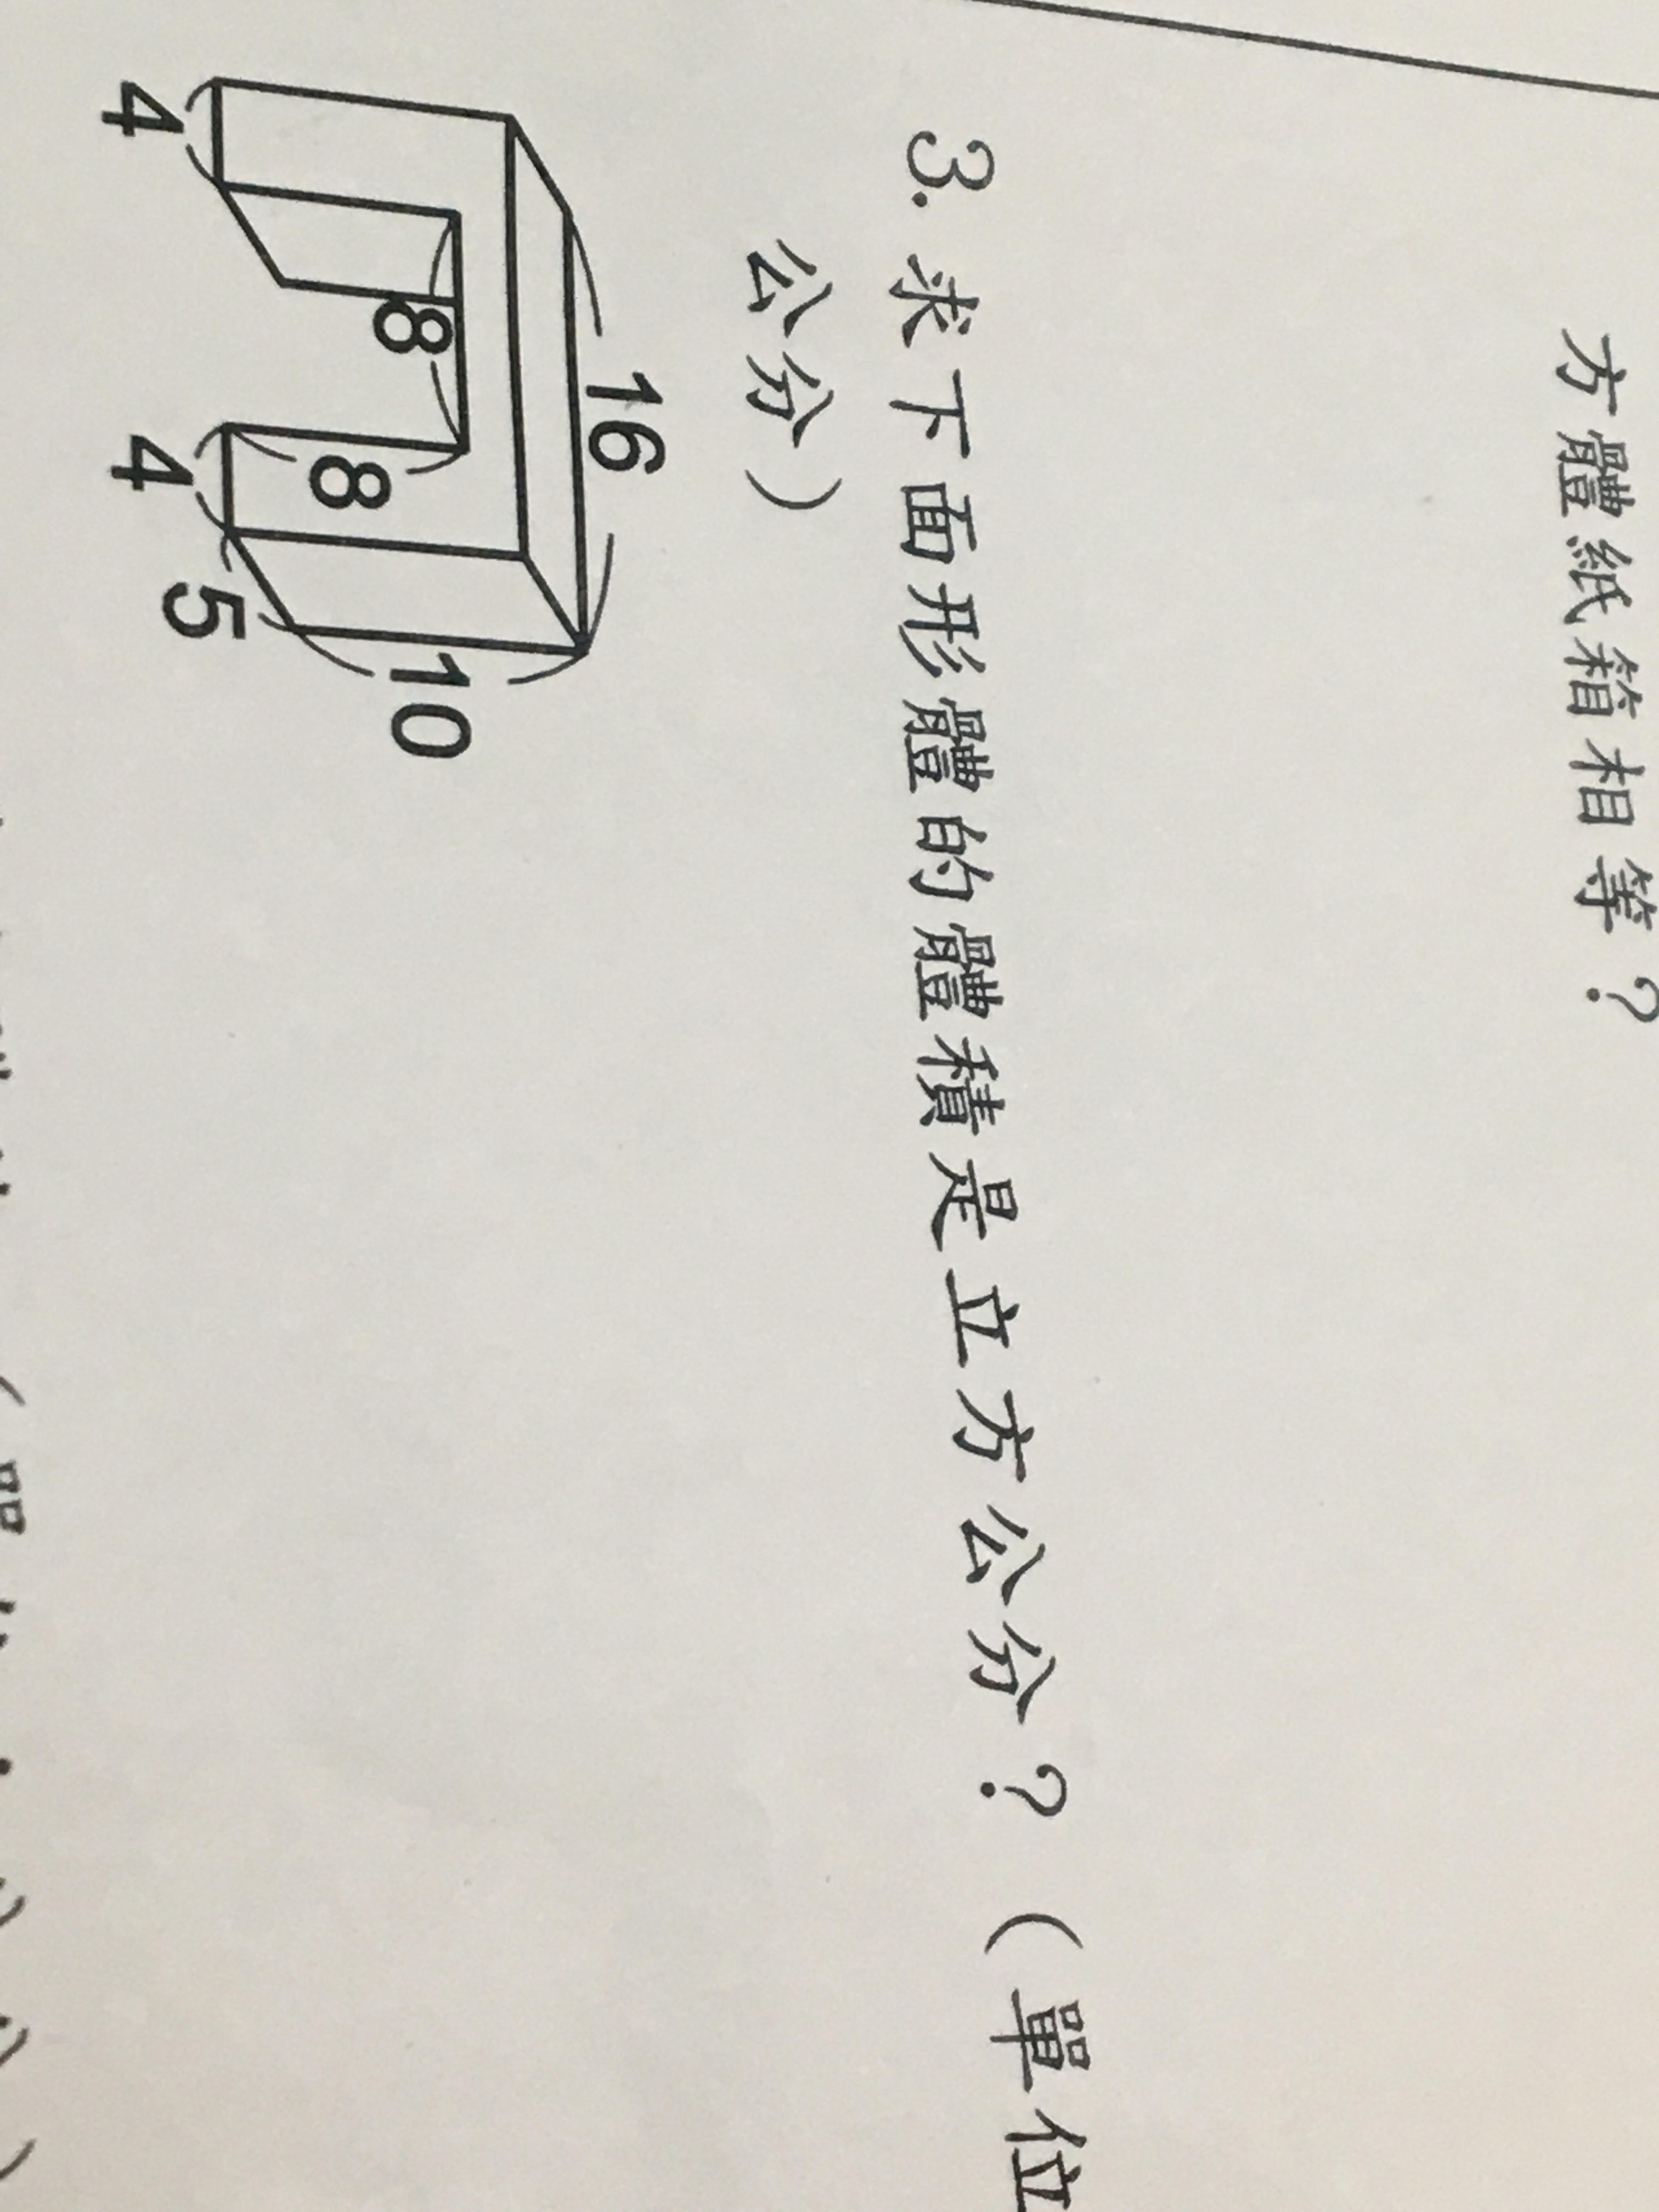 方體紙箱相等？
3. 求下面形體的體積是立方公分？（單位
公分）
16
8
8
10
4
4
5